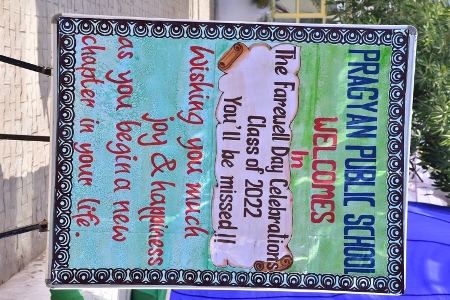 PRAGYAN PUBLIC SCHOOL
WELCOMES
In
The Farewell Day Celebrations
Class of 2022
You'll be missed!!
Wishing you much
joy & happiness
as you begin a new
chapter in your life.